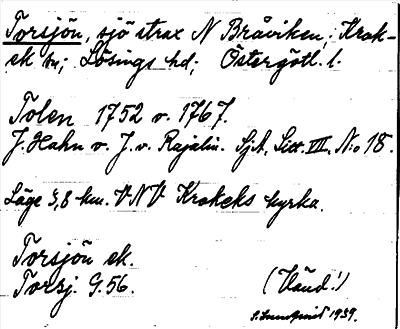 Torsjön, sjö strax N Bråviken; Krok-
ek sn; Lösings hd; Östergötl. l.
Tolen 1752 o. 1767.
J. Hahn o. J. v. Rajalin. Sjk, Sect. VII, N:o 18.
Läge 3,8 km. VNV Krokeks kyrka.
Torsjön ek.
Torsj. G. 56.
(Uänd!)
S. Lundquist 1939.